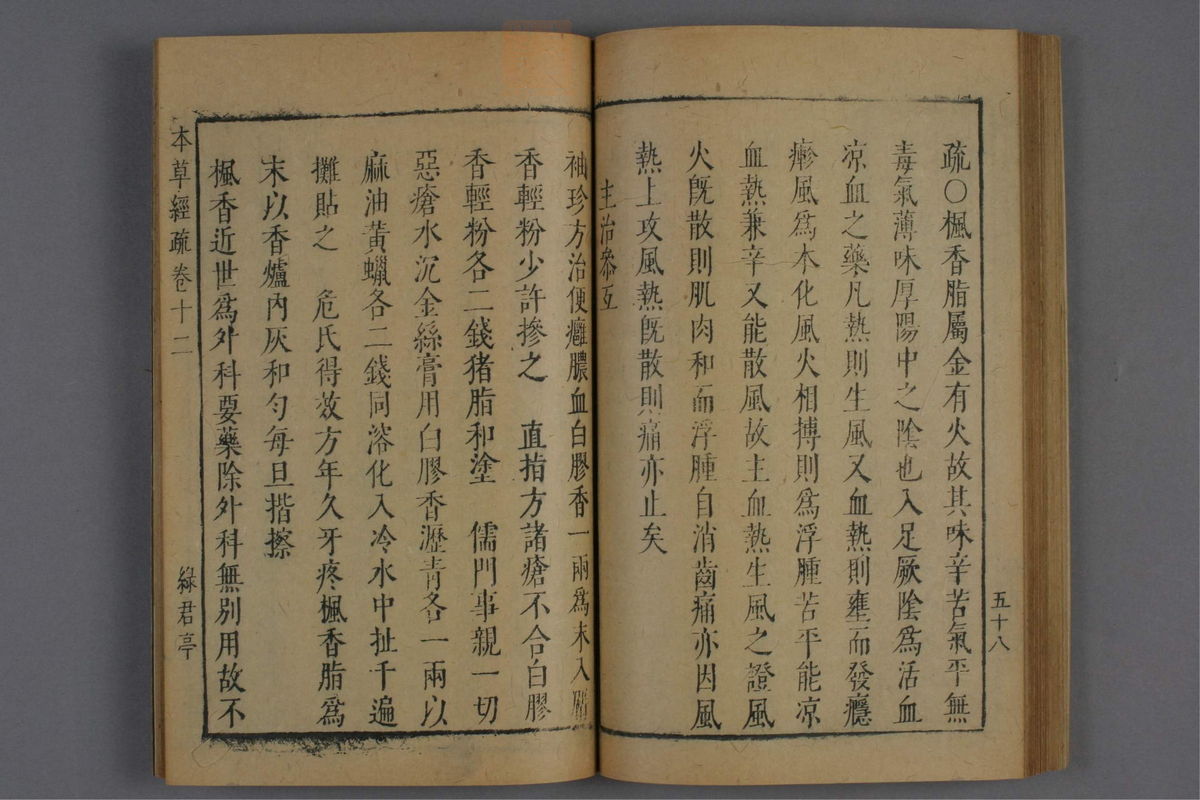 疏○楓香脂屬金有火故其味辛苦氣平無
毒氣薄味厚陽中之陰也入足厥陰爲活血
凉血之藥凡熱則生風又血熱則壅而發癮
𤺋風爲本化風火相搏則爲浮腫苦平能凉
血熱兼辛又能散風故主血熱生風之證風
火旣散則肌肉和而浮腫自消齒痛亦因風
熱上攻風熱旣散則痛亦止矣
主治參互
五十八
袖珍方治便癰膿血白膠香一兩爲末入麝
香輕粉少許摻之　直指方諸瘡不合白膠
香輕粉各二錢猪脂和塗　儒門事親一切
惡瘡水沉金絲膏用白膠香瀝青各一兩以
麻油黃蠟各二錢同溶化入冷水中扯千遍
攤貼之　危氏得效方年久牙疼楓香脂爲
末以香爐內灰和勻每旦揩擦
楓香近世爲外科要藥除外科無別用故不
本草經疏卷十二
綠君亭